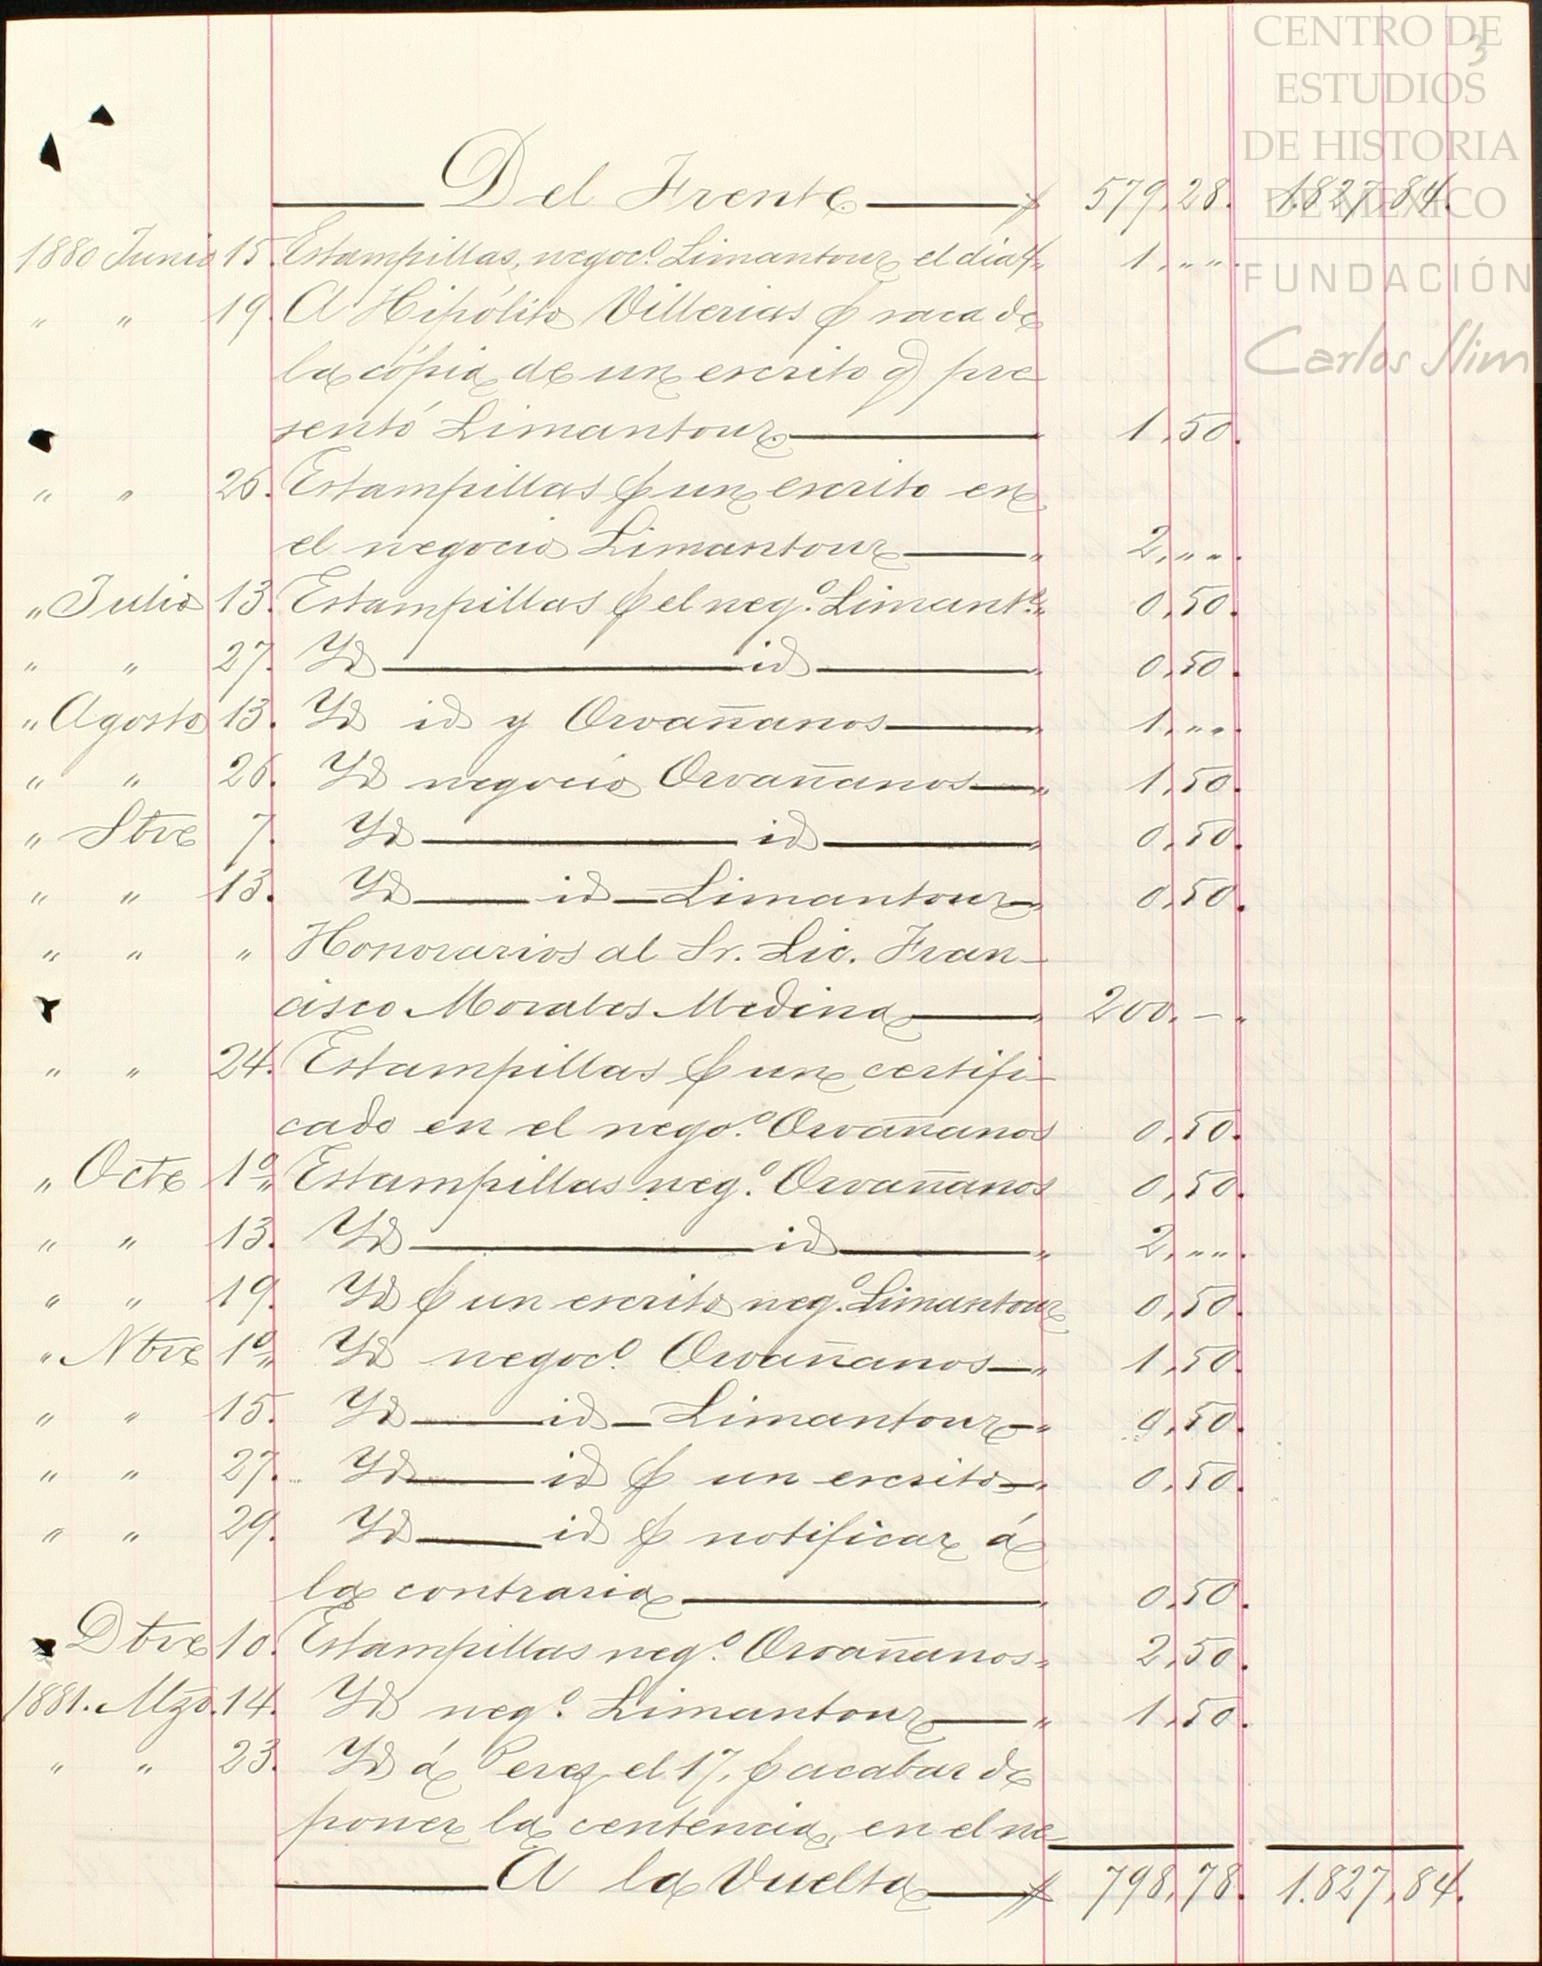 CENTRO DE
ESTUDIOS
DE HISTORIA
DE MÉXICO
FUNDACIÓN
Carlos Slim
3
Del Frente $ 579,28. 1.827,84.
1880 Junio 15. Estampillas, negoc.º Limantour el dia 4 " 1,"".
" " 19. A Hipólito Villerias p saca de
la cópia de un escrito q pre
sentó Limantour " 1,50.
" " 26. Estampillas p un escrito en
el negocio Limantour " 2,"".
" Julio 13. Estampillas p el neg.º Limant.r " 0,50.
" " 27. Yd id " 0,50.
" Agosto 13. Yd id y Orvañanos " 1,"".
" " 26. Yd negocio Orvañanos " 1,50.
" Stre 7. Yd id " 0,50.
" " 13. Yd id Limantour " 0,50.
" " " Honorarios al Sr. Lic. Fran-
cisco Morales Medina " 200.-.
" " 24. Estampillas p un certifi-
cado en el nego.º Orvañanos 0,50.
" Octe 1º " Estampillas neg.º Orvañanos 0,50.
" " 13. Yd id " 2,"".
" " 19. Yd p un escrito neg.º Limantour 0,50.
" Nbre 1º " Yd negoc.º Orvañanos " 1,50.
" " 15. Yd id Limantour " 0,50.
" " 27. Yd id p un escrito " 0,50.
" " 29. Yd id p notificar á
la contraria " 0,50.
" Dbre 10. Estampillas neg.º Orvañanos " 2,50.
1881. Mzo. 14. Yd neg.º Limantour " 1,50.
" " 23. Yd á Perez, el 17, p acabar de
poner la centencia, en el ne-
A la Vuelta $ 798,78. 1.827,84.